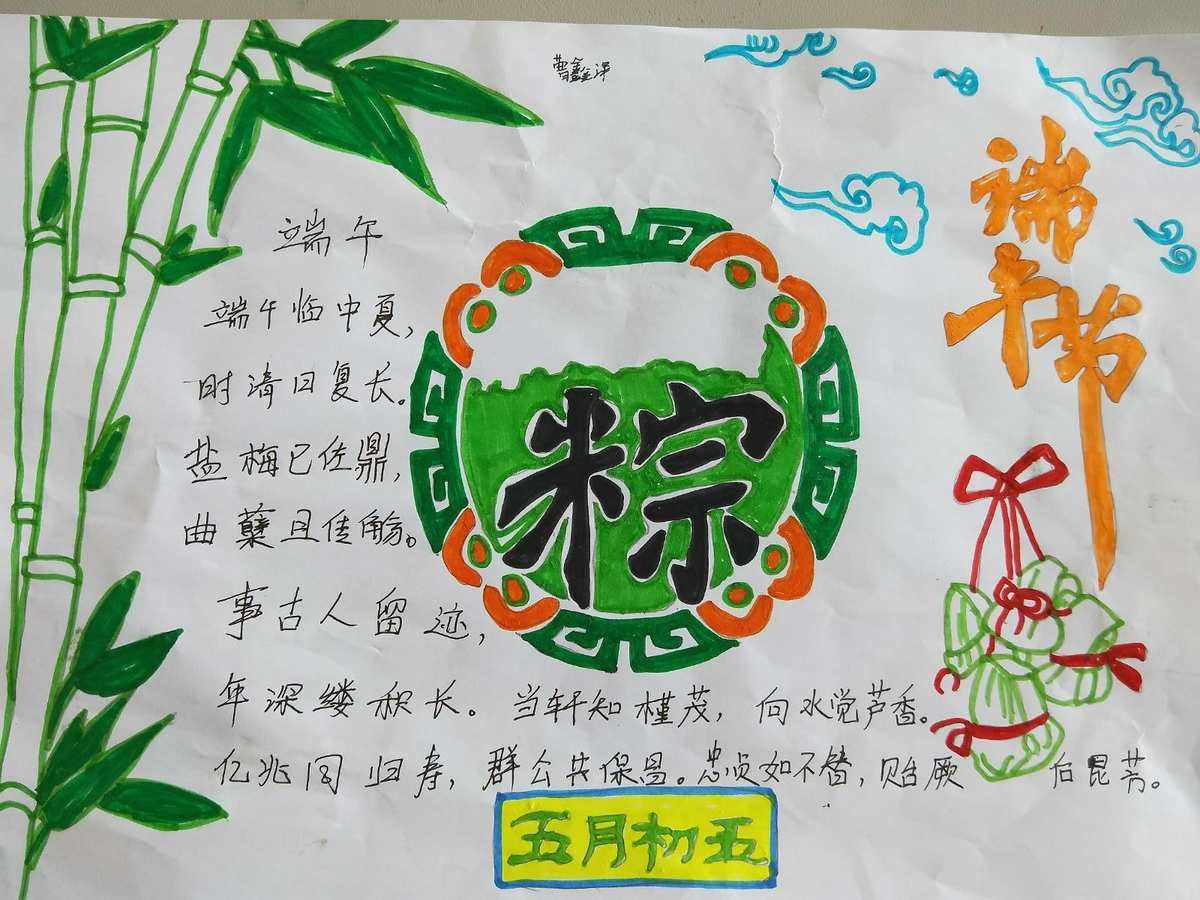 端午节
端午
端午临中夏,
时清日复长。
盐梅已佐鼎,
曲蘖且传觞。
事古人留迹,
年深缕积长。当轩知槿茂,向水觉芦香。
亿兆同归寿,群公共保昌。忠贞如不替,贻厥后昆芳。
粽
五月初五